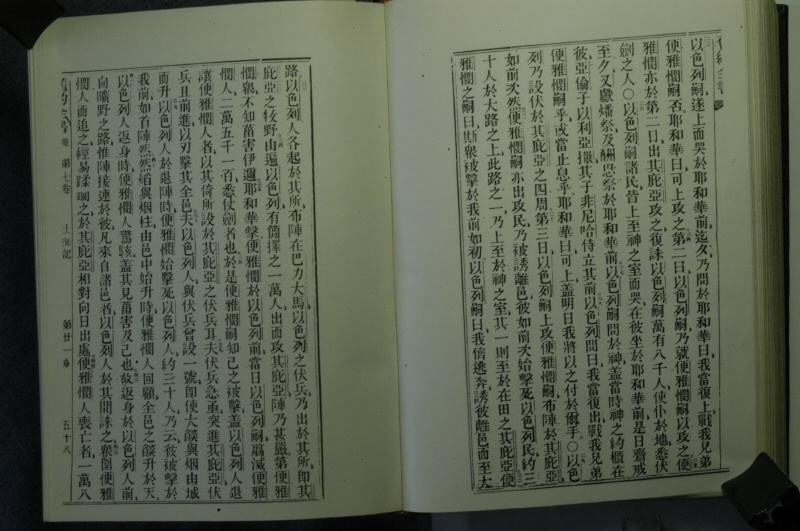 以色列嗣遂上而哭於耶和華前迄久乃問於耶和華曰我當復上戰我兄弟
便雅憫嗣否耶和華曰可上攻之第二日以色列嗣乃就便雅憫嗣以攻之便
雅憫亦於第二日出其庇亞攻之復誅以色列嗣萬有八千人使仆於地悉伏
劍之人〇以色列嗣諸民皆上至神之室而哭在彼坐於耶和華前是日齋戒
至夕又獻燔祭及酬恩祭於耶和華前以色列嗣問於神蓋當時神之約櫃在
彼亞倫子以利亞撒其子非尼哈侍立其前以色列問曰我當復出戰我兄弟
便雅憫嗣乎或當止息乎耶和華曰可上蓋明日我將以之付於爾手〇以色
列乃設伏於其庇亞之四周第三日以色列嗣上攻便雅憫嗣布陣於其庇亞
如前次然便雅憫嗣亦出攻民乃被誘離邑彼如前次始擊死以色列民約三
十人於大路之上此路之一乃上至於神之室其一則至於在田之其庇亞便
雅憫之嗣曰斯眾被擊於我前如初以色列嗣曰我儕逃奔誘彼離邑而至大
路以色列人各起於其所布陣在巴力大馬以色列之伏兵乃出於其所即其
庇亞之牧野由遍以色列有簡擇之一萬人出而攻其庇亞陣乃甚嚴第便雅
憫眾不知菑害伊邇耶和華擊便雅憫於以色列前當日以色列嗣勦滅便雅
憫人二萬五千一百悉仗劍者也於是便雅憫嗣知己之被擊蓋以色列人退
讓便雅憫人者以其倚所設於其庇亞之伏兵耳夫伏兵急亟突進其庇亞伏
兵且前進以刃擊其全邑夫以色列人與伏兵曾設一號即使大燄與烟由城
而升以色列人於退陣時便雅憫始擊死以色列人約三十人乃云彼被擊於
我前如首陣然然焰與烟柱由邑中始升時便雅憫人回顧全邑之燄升於天
以色列人返身時便雅憫人驚駭蓋其見菑害及己也故返身於以色列人前
向曠野之路惟陣接連於彼凡來自諸邑者以色列人於其間誅之眾圍便雅
憫人而追之輕易蹂躪之於其庇亞相對向日出處便雅憫人喪亡者一萬八
第七卷 士師記 第廿一章 五十八